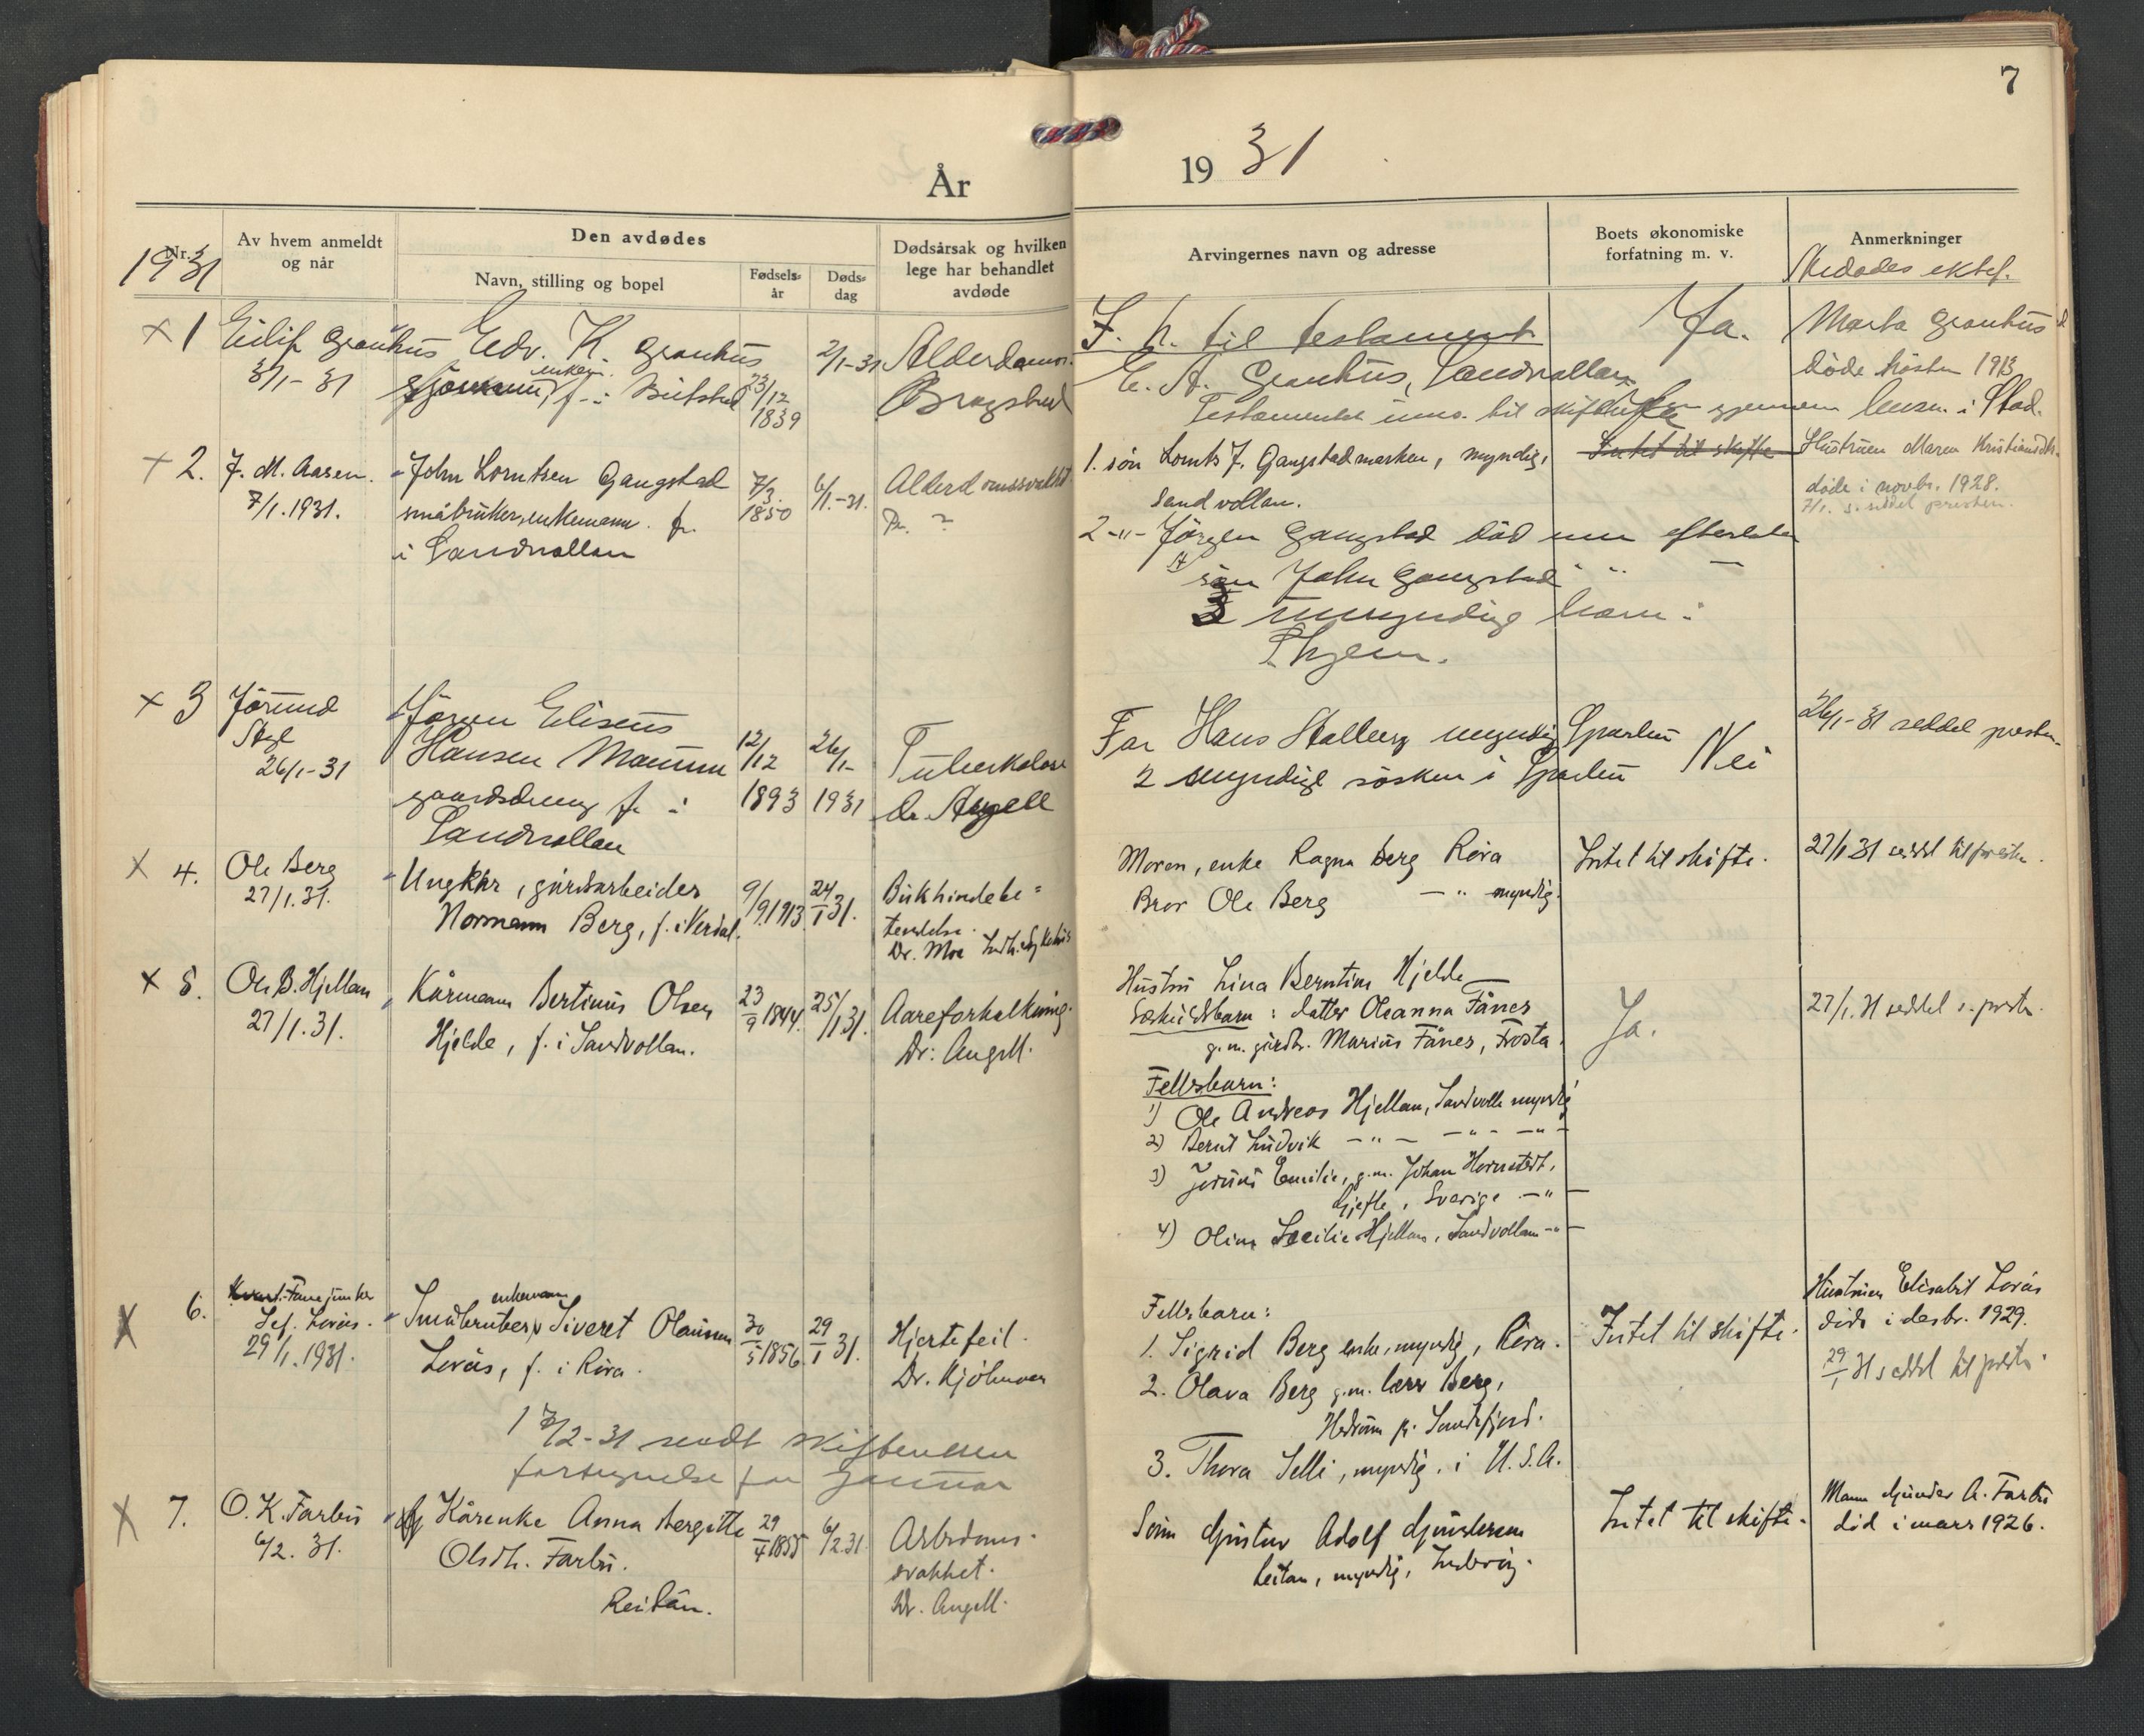 7
År 1931
Nr.
1931
Av hvem anmeldt
og når
Den avdødes
Navn, stilling og bopel
Fødsels-
år
Døds-
dag
Dødsårsak og hvilken
lege har behandlet
avdøde
Arvingernes navn og adresse
Boets økonomiske
forfatning m. v.
Anmerkninger
x 1
Eilif Granhus
3/1-31
Edv. K. Granhus
enkem.
f. i
23/12
1839
2/1-31
til testament.
Granhus, Sandvollan
Testamentet gjennem lensm. i Stod.
Ja.
Marta Granhus
døde høsten 1913
x 2.
J. M. Aasen.
7/1.1931.
John Lorntsen Gangstad
småbruker, enkemann. f.
i Sandvollan
7/3.
1850
6/1.-31.
Alderdomssvakhet
Dr. ?
1. søn Lornts J. Gangstadmarken, myndig,
Sandvollan.
2 -"- Jørgen Gangstad død men efterlater
søn John Gangstad
3 umyndig barn i
Skjem.
Intet til skifte
Hustruen Maren
døde i novbr. 1928.
7/1. s. seddel presten.
x 3
Jørund
26/1-31
Jørgen Eliseus
Hansen
gaardsdreng f. i
Sandvollan
12/12
1893
26/1-
1931
Tuberkulose
Dr. Angell
Far Hans Stalberg myndig Sparbu
2 myndige søsken i Sparbu
Nei
26/1-31 seddel presten
x 4.
Ole Berg
27/1.31.
Ungkar, gårdsarbeider
Normann Berg, f. i Verdal.
9/9 1913
24/1 31.
Bukhindebe-
tendelse.
Dr. Moe Indh. sykehus
Moren, enke Ragna Berg Røra
Bror Ole Berg -"- myndig.
Intet til skifte.
27/1 31 seddel til presten.
x 5.
Ole B. Hjellan
27/1.31.
Kårmann Bertinus Olsen
Hjelde, f. i Sandvollan.
23/9 1844.
25/1 31.
Aareforkalkning.
Dr. Angell.
Hustru Lina Berntine Hjelde
Særkuldsbarn: datter Oleanna Fånes
g.m. gårdbr. Marius Fånes, Frosta.
Fellesbarn:
1) Ole Andreas Hjellan, Sandvolla myndig
2) Bernt Ludvik -"- -"- -"-
3) Emilie, g.m. Johan Hornstedt,
Gjefle, Sverige -"-
4) Oline Hjellan, Sandvollan -"-
Ja.
27/1.31 seddel s. presten.
x 6.
29/1.1931.
enkemann
Småbruker, Siveret Olausen
Lorås, f. i Røra.
30/5 1856.
29/1 31.
Hjertefeil.
Fellesbarn:
1. Sigrid Berg enke, myndig, Røra.
2. Olava Berg g.m. Berg,
Hedrum pr. Sandefjord.
3. Thora Selli, myndig, i U.S.A.
Intet til skifte.
Hustruen Elisabet Lorås
døde i desbr. 1929.
29/1 31 seddel til presten.
/2-31 sendt skifteretten
fortegnelse for januar
x 7.
O. K. Farbu
6/2. 31.
Kårenke Anna Bergitte
Olsdtr. Farbu.
Reitan.
29/4 1855
6/2 31.
Alderdoms-
svakhet.
Dr. Angell.
Sønn Gustav Adolf Gundersen
Leitan, myndig, Inderøy.
Intet til skifte.
Mann Gunder A. Farbu
død i mars 1926.